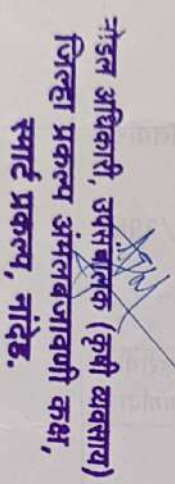 नोडल अधिकारी, उपसंचालक (कृषी व्यवसाय)
जिल्हा प्रकल्प अंमलबजावणी कक्ष,
स्मार्ट प्रकल्प, नांदेड.